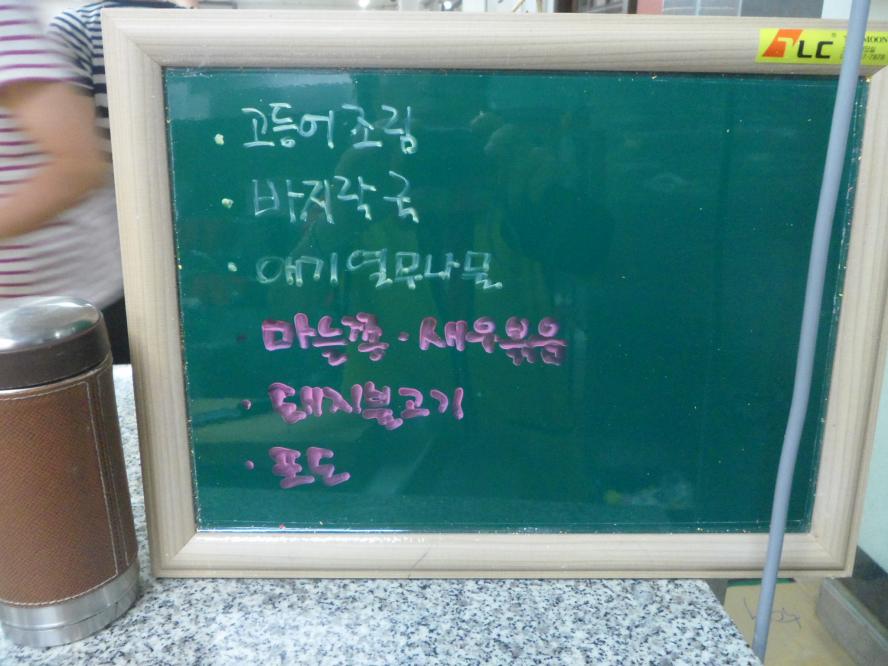 · 고등어조림
· 바지락국
· 애기열무나물
· 마늘쫑·새우볶음
· 돼지불고기
· 포도
LC
MOON